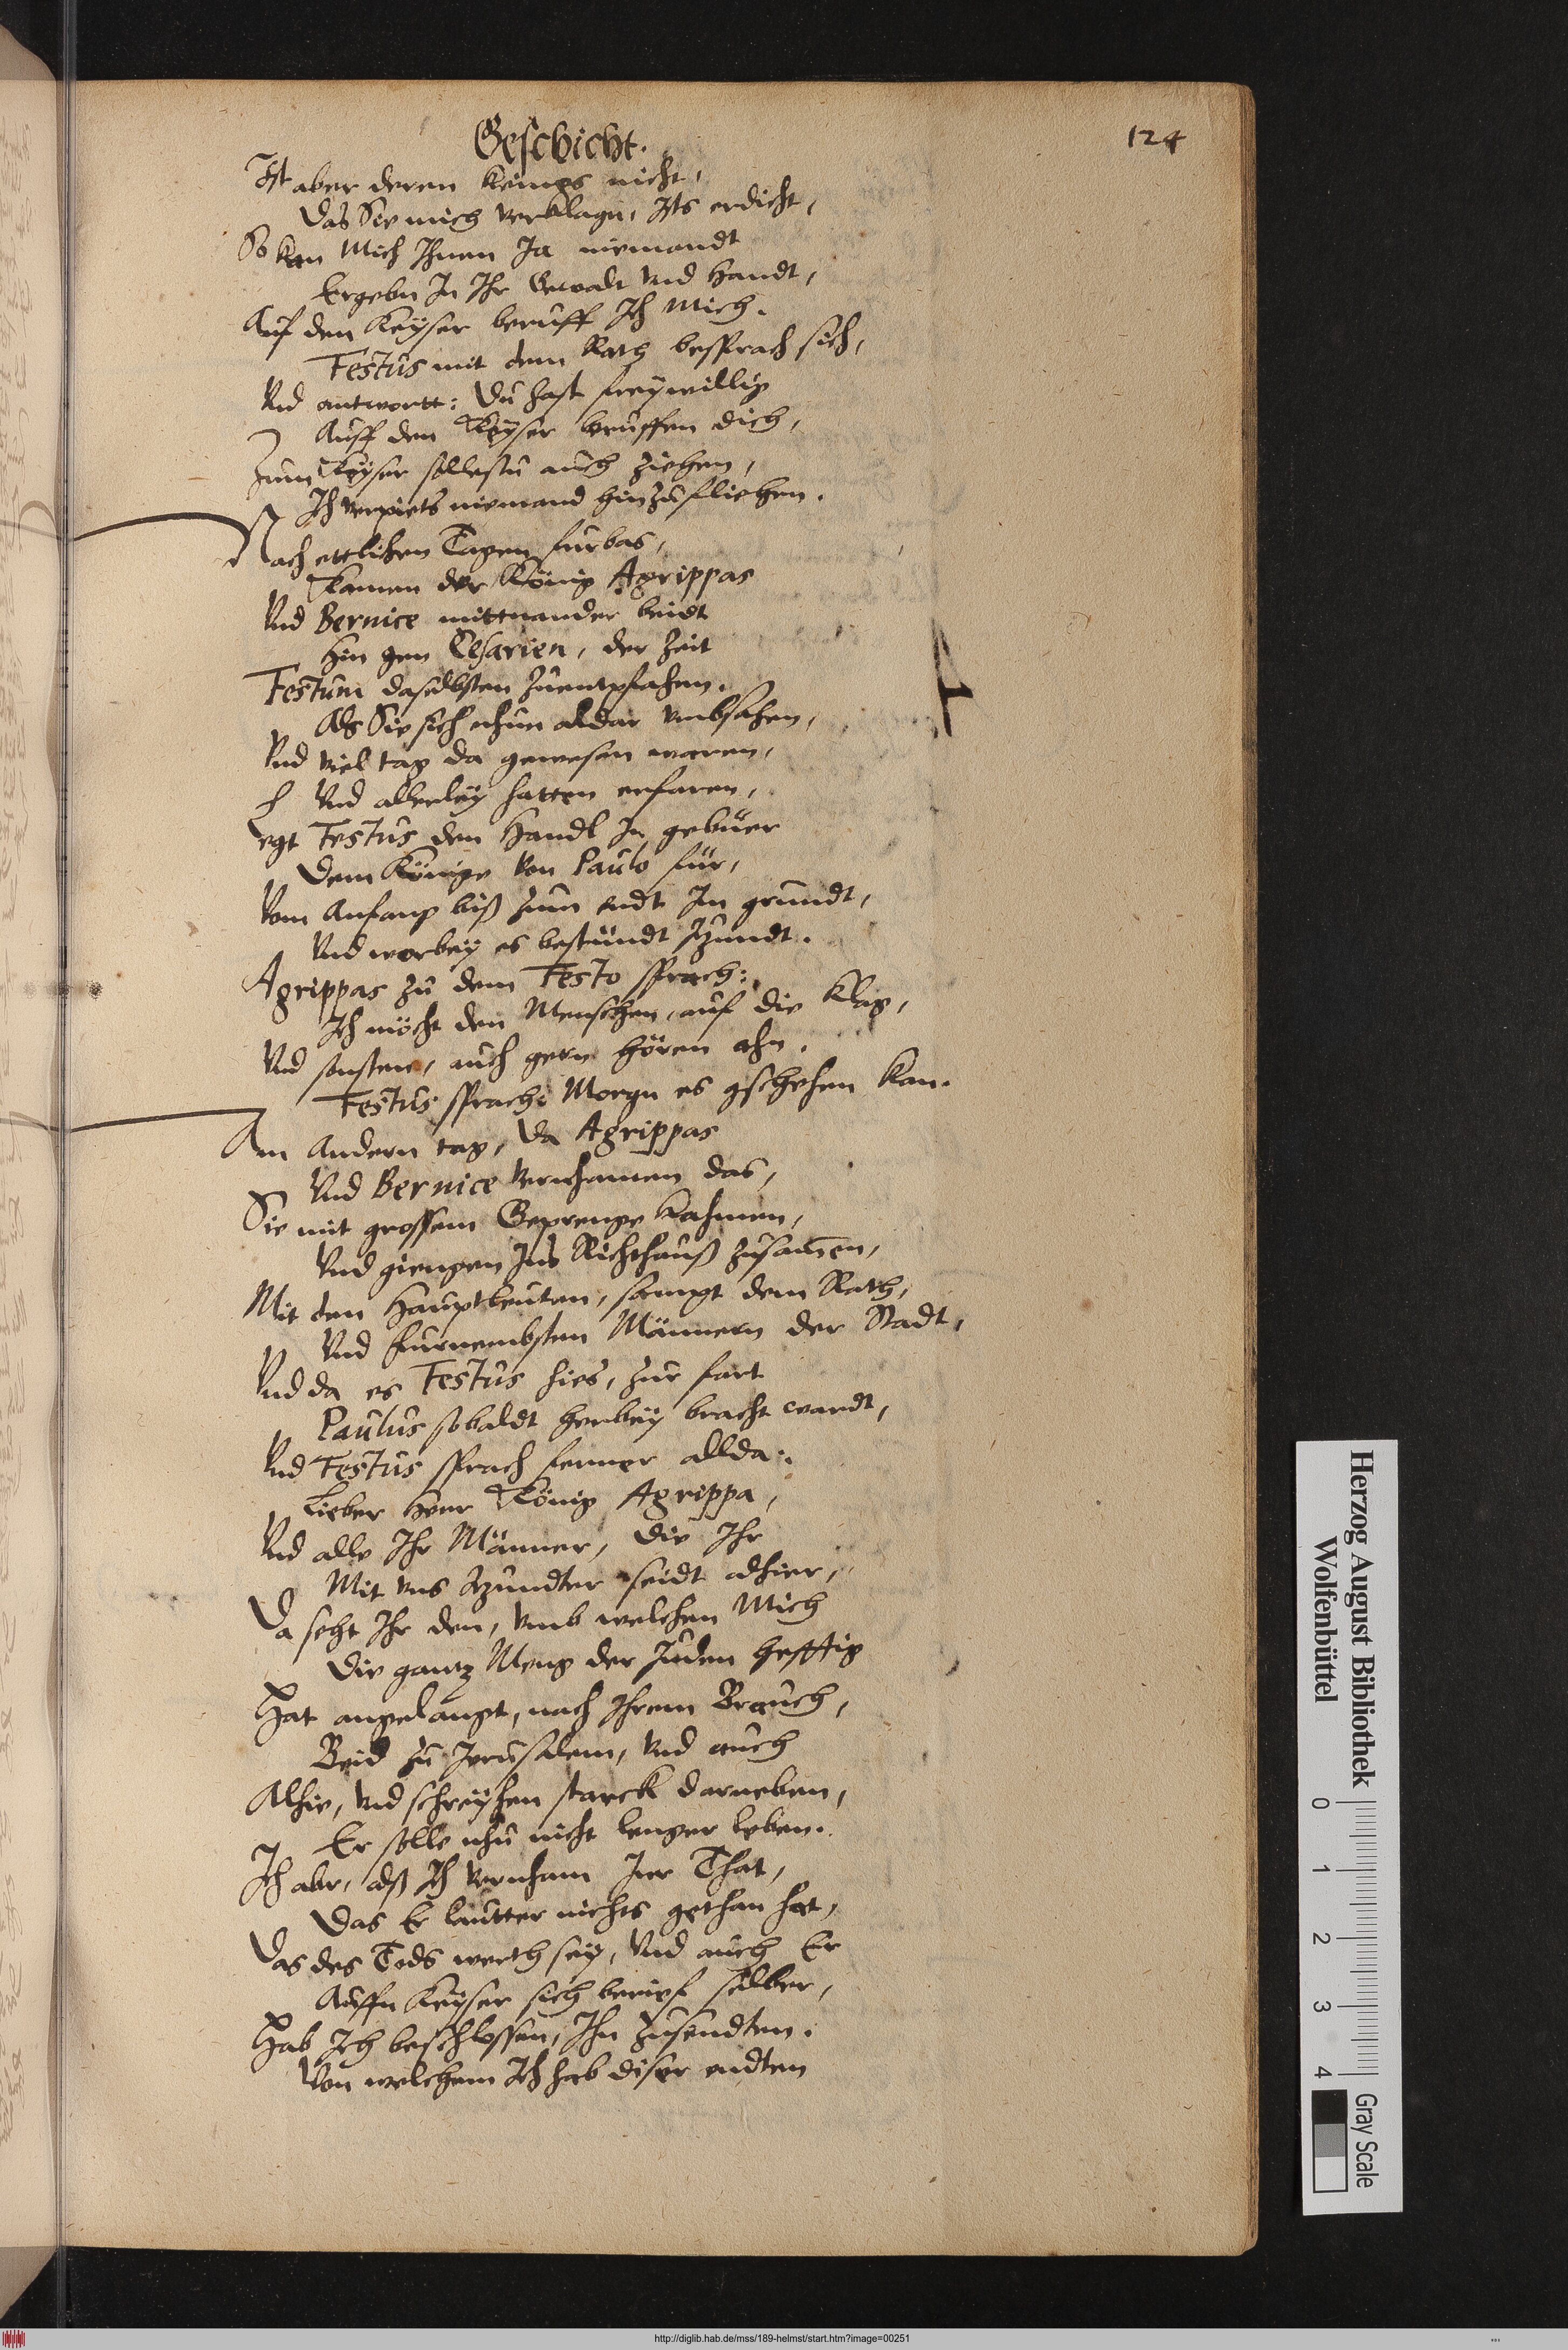 Geschicht.
124
Ist aber deren keines nicht,
Das Sie mich verklagn, Ists erdicht,
So kan Mich Ihnen Ja niemandt
Ergebn In Ihr Gewalt vnd Handt,
Auf den Keyser beruff Ich Mich.
Festus mit dem Rath besprach sich,
Vnd antwortt: Du hast freywillig
Auff den Keyser beruffen dich,
Zum Keyser sollestu auch ziehen,
Ich verpiets niemand hinzufliehen.
Nach ettlichen Tagen furbas,
Kamen der König Agrippas
Vnd Bernice mittnander beidt
Hin gen Cesarien, der Zeit
Festum daselbsten zuentpfahen.
Als Sie sich nhun aldar vmbsahen,
Vnd viel tag da gewesen waren,
Vnd allerley hatten erfaren,
Legt Festus den Handl In gebüer
Dem Könige von Paulo für,
Vom Anfang biß zum endt Im grundt,
Vnd worbey es bestündt Itzundt.
Agrippas zu dem Festo sprach:
Ich möcht den Menschen, auf die Klag,
Vnd sonsten, auch gern hören ahn.
Festus sprach: Morgn es gschehen kan.
Am Andern tag, da Agrippas
Vnd Bernice vernhamen das,
Sie mit grossem Geprenge kahmen,
Vnd giengen Ins Richthauß zusamen,
Mit den Hauptleuten, sampt dem Rath,
Vnd furnembsten Männern der Stadt,
Vnd da es Festus hies, zur fart
Paulus sobaldt herbey bracht wardt,
Vnd Festus sprach ferner allda:
Lieber Herr König Agrippa,
Vnd alle Ihr Männer, die Ihr
Mit vns Itzundter seidt alhier,
Da seht Ihr den, vmb welchen Mich
Die gantz Meng der Juden hefftig
Hat angelangt, nach Ihrem Brauch,
Beid zu Jerusalem, vnd auch
Alhie, vnd schreyhen starck darneben,
Er solle nhu nicht lenger leben.
Ich abr, alß Ich vernham Jer That,
Das Er lautter nichts gethan hat,
Das des Tods werth sey, Vnd auch Er
Auffn Keyser sich berief selber,
Hab Ich beschlossen, Ihn zusendten.
Von welchem Ich hab diser endten
Herzog August Bibliothek
Wolfenbüttel
0 1 2 3 4
Gray Scale
http://diglib.hab.de/mss/189-helmst/start.htm?image=00251